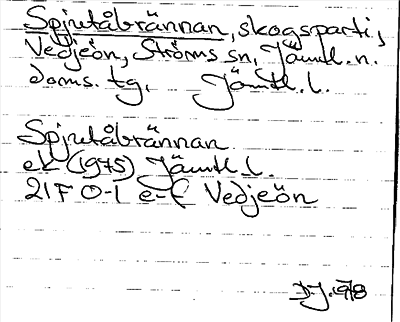 Spjutåbrännan, skogsparti i
Vedjeön, Ströms sn, Jämtl. n.
doms. tg, Jämtl. l.
Spjutåbrännan
ek (1975) Jämtl. l.
21F 0-1 e-f Vedjeön
D-J. 1978